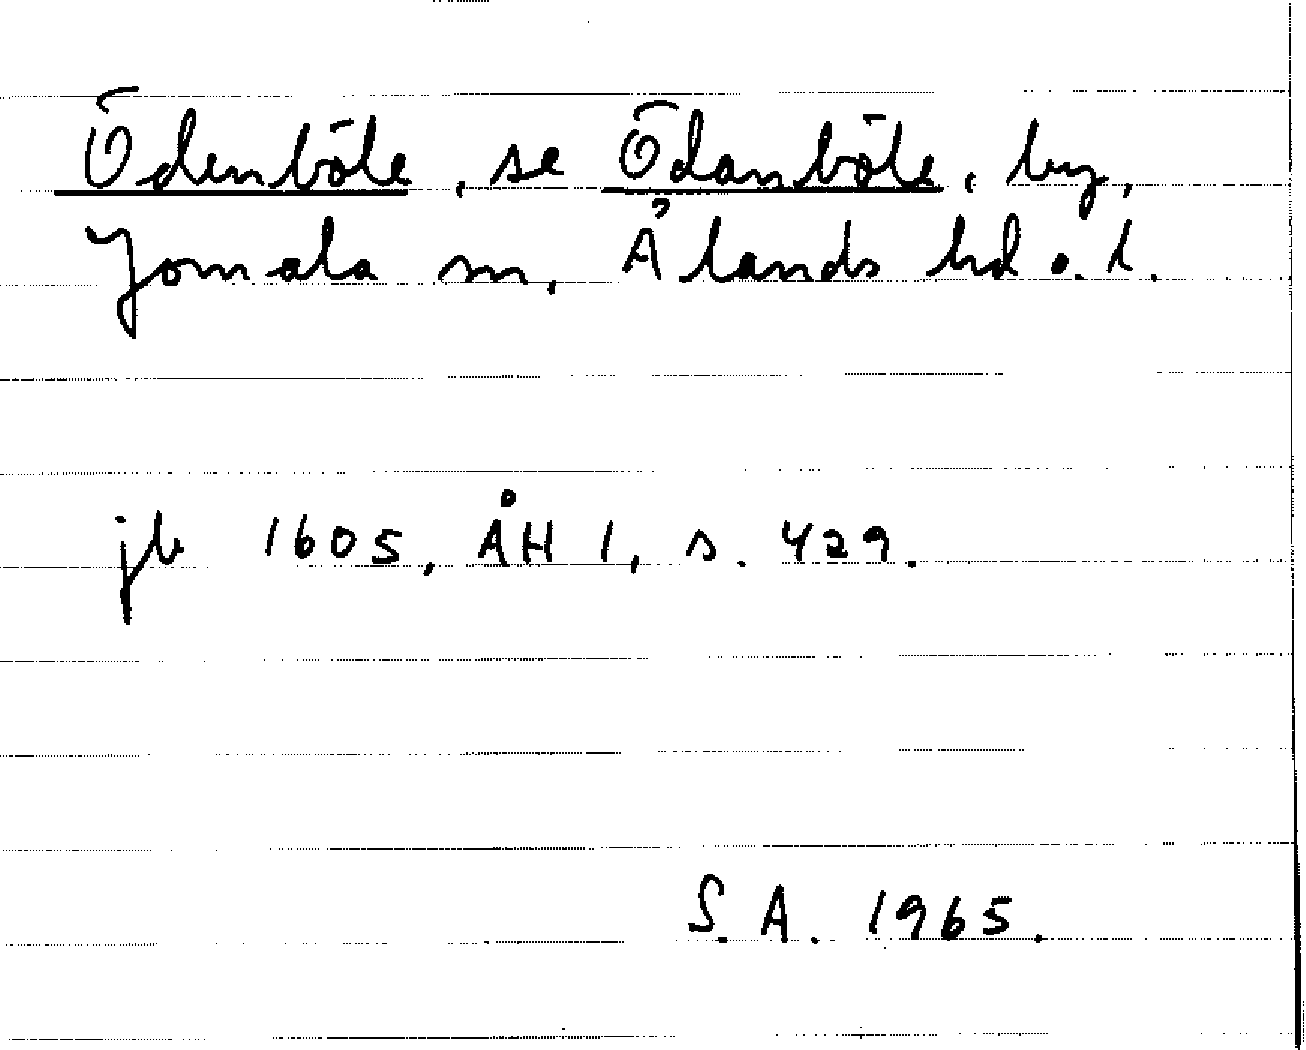 Ödenböle, se Ödanböle, by,
Jomala sn, Ålands hd o. l.
jb 1605, ÅH 1, s. 429.
S. A. 1965.